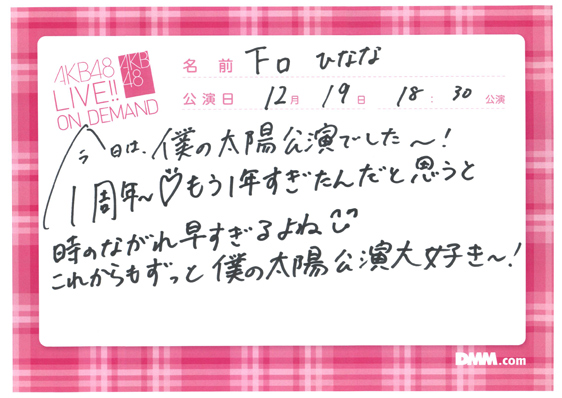 AKB48
LIVE!!
ON DEMAND
AKB
48
名前 下口 ひなな
公演日 12月 19日 18:30公演
今日は、僕の太陽公演でした〜!
1周年〜♡もう1年すぎたんだと思うと
時のながれ早すぎるよね
これからもずっと僕の太陽公演大好き〜!
DMM.com